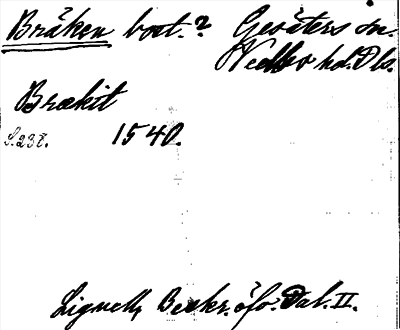 Bräken bort.? Gesäters sn.
Vedbo hd. Dls.
Brækit
S. 238. 1540.
Lignell, Beskr. öfv. Dal. II.